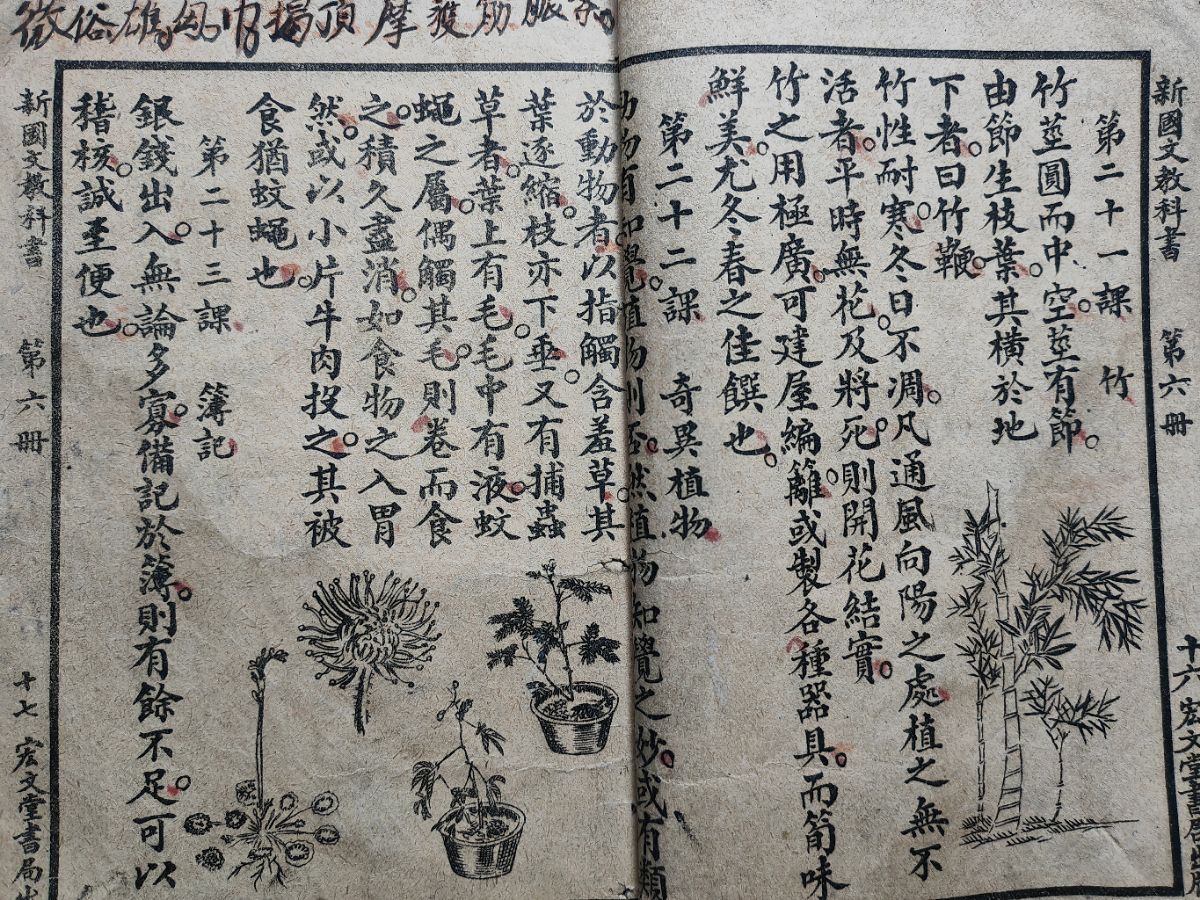 徵俗雄毋巾揭頂摩獲劢
新國文教科書　第六册　十六　宏文堂書局出版
第二十一課　竹
竹莖圓而中空。莖有節。
由節生枝葉。其橫於地
下者。曰竹鞭。
竹性耐寒。冬日不凋。凡通風向陽之處。植之無不
活者。平時無花。及將死。則開花結實。
竹之用極廣。可建屋編籬。或製各種器具。而筍味
鮮美。尤冬春之佳饌也。
第二十二課　奇異植物
動物有知覺。植物則否。然植物知覺之妙。或有類
於動物者。以指觸含羞草。其
葉逐縮。枝亦下垂。又有捕蟲
草者。葉上有毛。毛中有液。蚊
蠅之屬。偶觸其毛。則卷而食
之。積久盡消。如食物之入胃
然。或以小片牛肉投之。其被
食猶蚊蠅也。
第二十三課　簿記
銀錢出入。無論多寡。備記於簿。則有餘不足。可以
稽核。誠至便也。
新國文教科書　第六册　十七　宏文堂書局出